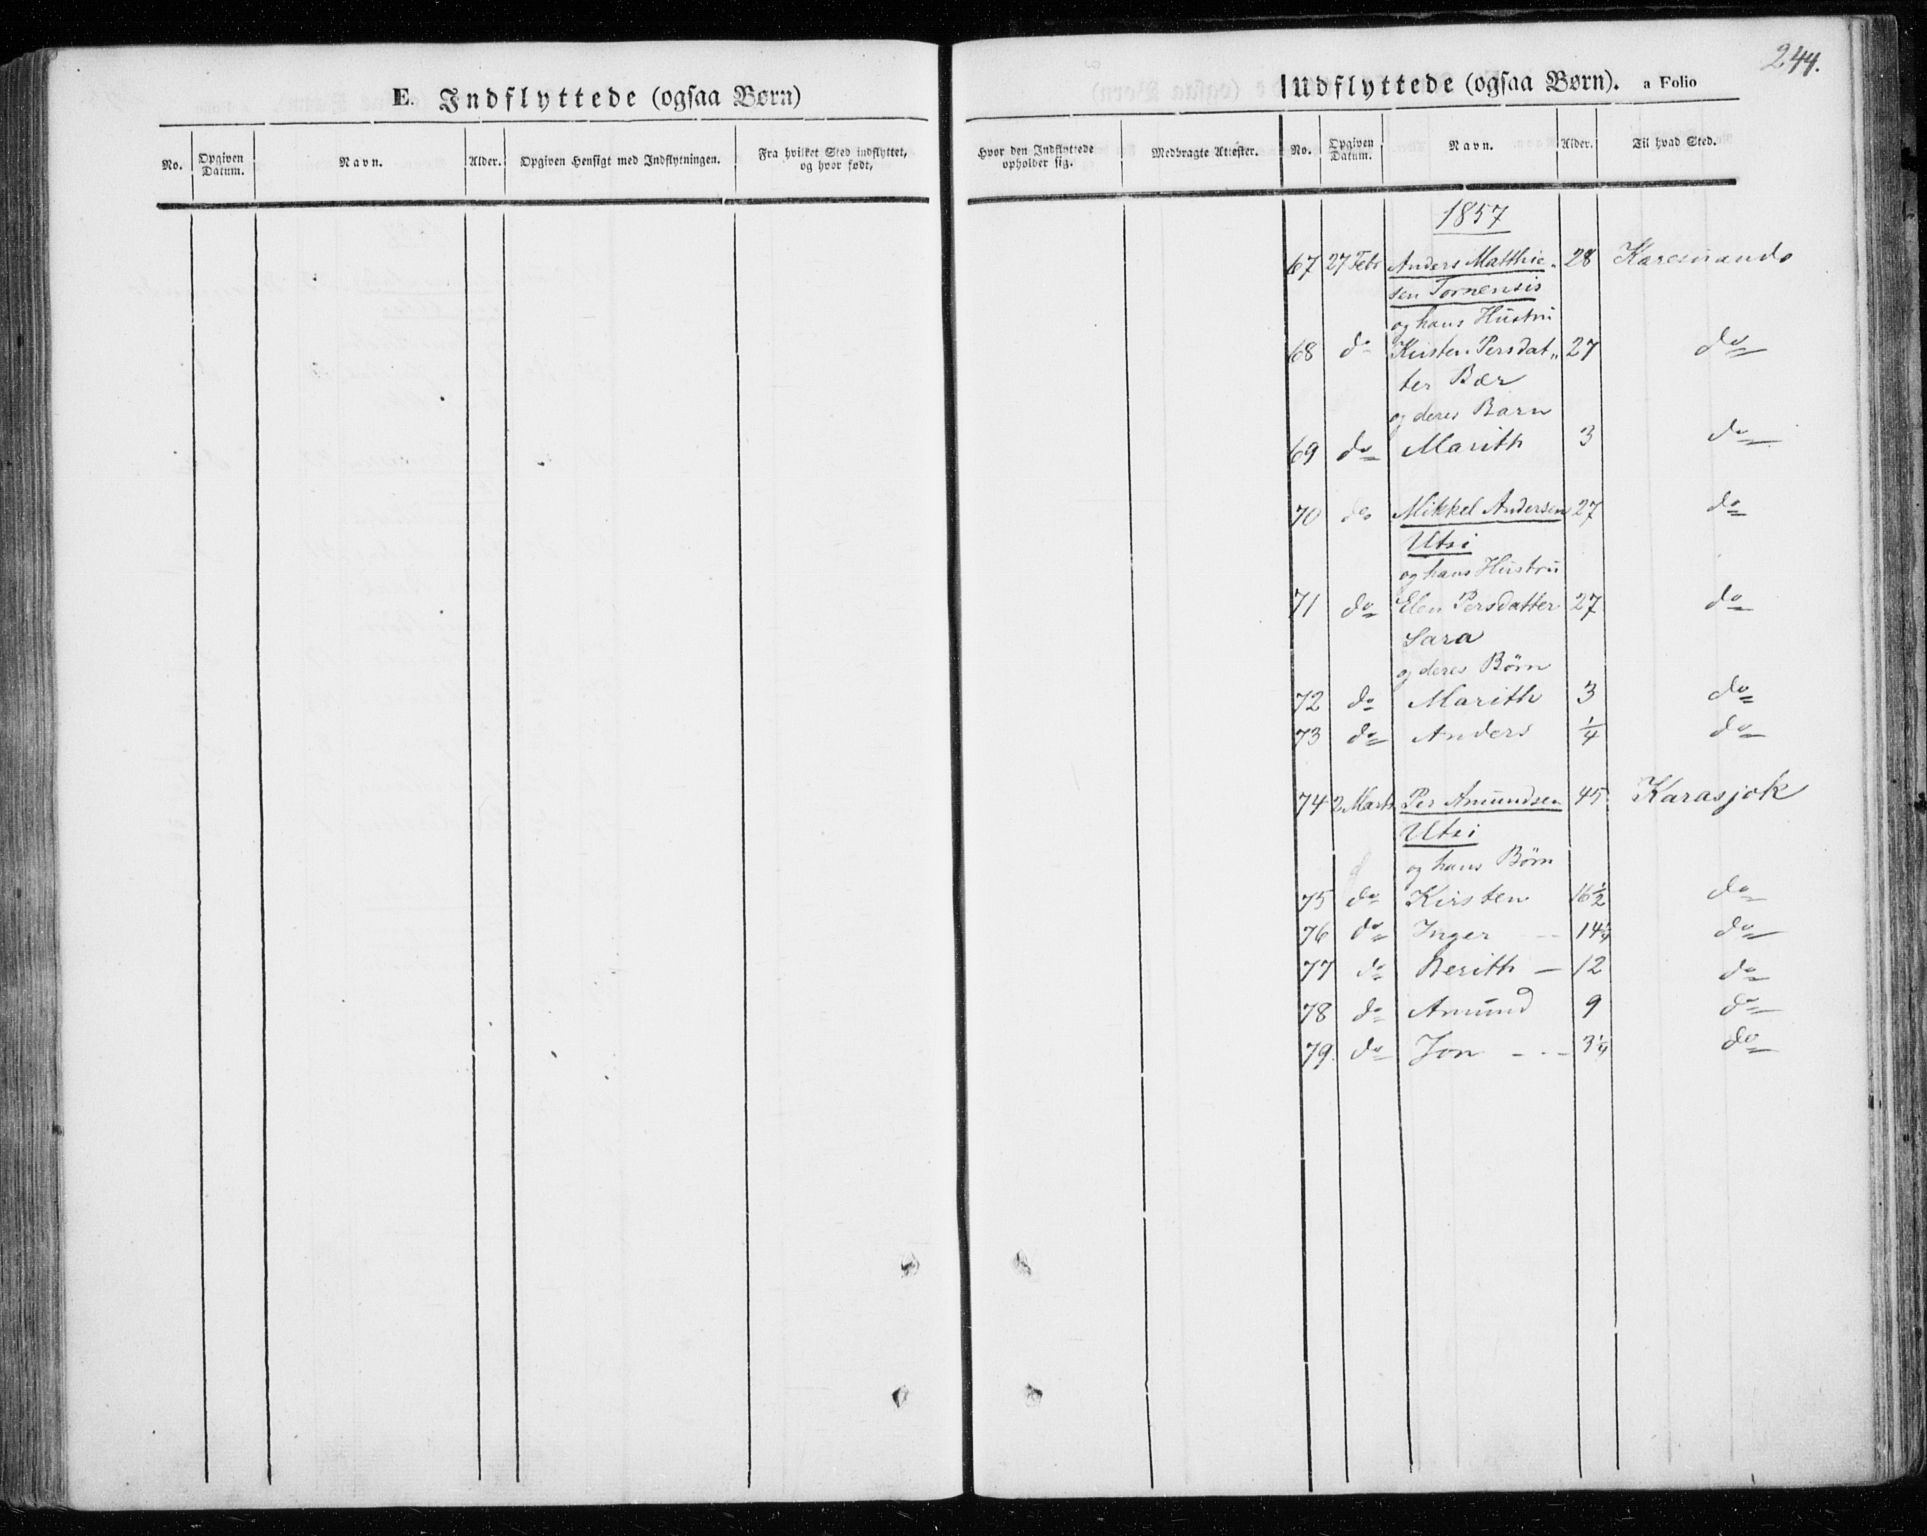 244.
E. Indflyttede (ogsaa Børn)
No. Opgiven Datum. Navn. Alder. Opgiven Hensigt med Indflytningen. Fra hvilket Sted indflyttet, og hvor født,
Indflyttede (ogsaa Børn). a Folio
Hvor den Indflyttede opholder sig. Medbragte Attester. No. Opgiven Datum. Navn. Alder. Til hvad Sted.
1857
67 27 Febr Anders Matthie- 28 Karesuando
sen Tornensis
og hans Hustru
68 do Kirsten Persdat- 27 do
ter Bær
og deres Barn
69 do Marith 3 do
70 do Mikkel Andersen 27 do
Utsi
og hans Hustru
71 do Elen Persdatter 27 do
Sara
og deres Børn
72 do Marith 3 do
73 do Anders 1/4 do
74 2 Marts Per Amundsen 45 Karasjok
Utsi
og hans Børn
75 do Kirsten 16 1/2 do
76 do Inger 14 1/4 do
77 do Berith — 12 do
78 do Amund 9 do
79. do Jon - - - 3 1/4 do